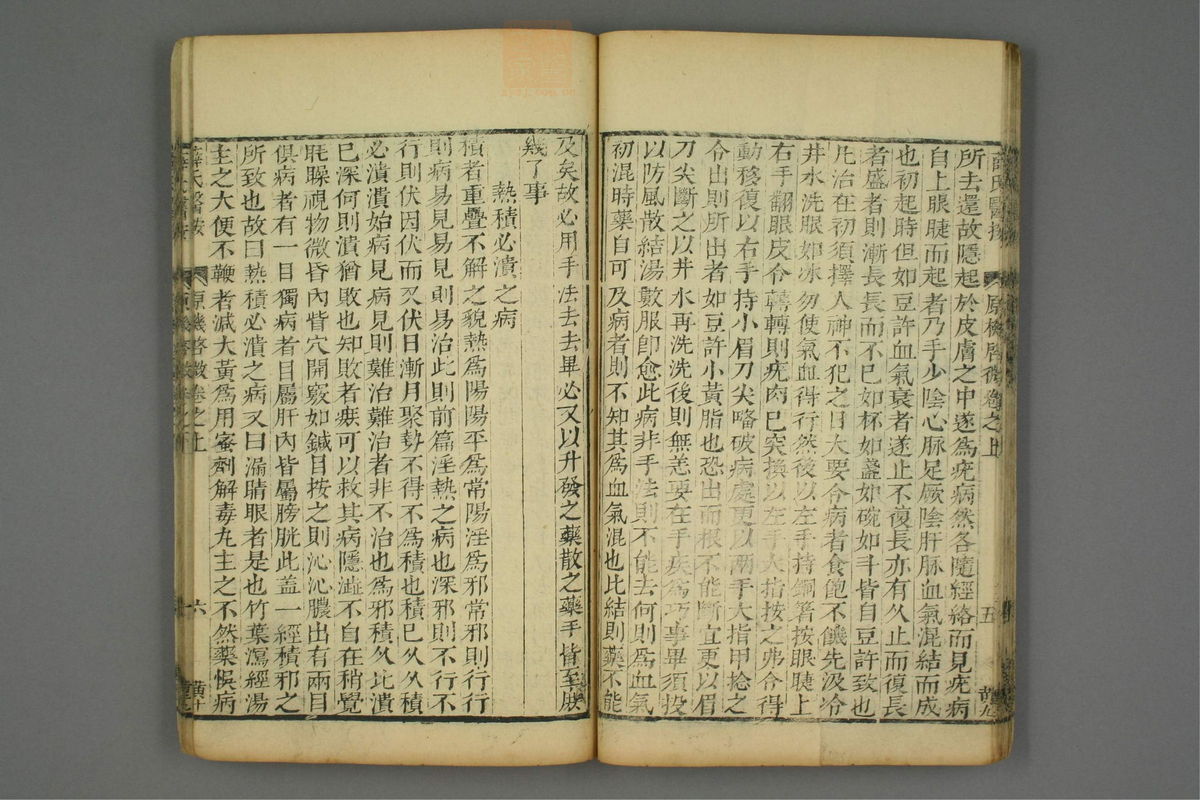 所去還故隱起於皮膚之中遂為疣病然各隨經絡而見疣病
自上眼睫而起者乃手少陰心脉足厥陰肝脉血氣混結而成
也初起時但如豆許血氣衰者遂止不復長亦有久止而復長
者盛者則漸長長而不已如杯如盞如碗如斗皆自豆許致也
凡治在初須擇人神不犯之日大要令病者食飽不饑先汲冷
井水洗眼如冰勿使氣血得行然後以左手持銅箸按眼睫上
右手翻眼皮令轉轉則疣肉已突換以左手大指按之弗令得
動移復以右手持小眉刀尖略破病處更以兩手大指甲捻之
令出則所出者如豆許小黃脂也恐出而根不能斷宜更以眉
刀尖斷之以井水再洗洗後則無恙要在手疾為巧事畢須投
以防風散結湯數服即愈此病非手法則不能去何則為血氣
初混時藥自可及病者則不知其為血氣混也比結則藥不能
原機啓微卷之上
五
黃九
及矣故必用手法去去畢必又以升發之藥散之藥手皆至庶
幾了事
熱積必潰之病
積者重疊不解之貌熱為陽陽平為常陽淫為邪常邪則行行
則病易見易見則易治此則前篇淫熱之病也深邪則不行不
行則伏因伏而又伏日漸月聚勢不得不為積也積已久久積
必潰潰始病見病見則難治難治者非不治也為邪積久比潰
已深何則潰猶敗也知敗者疾可以救其病隱澁不自在稍覺
眊矂視物微昏內眥穴開竅如鍼目按之則沁沁膿出有兩目
俱病者有一目獨病者目屬肝內眥屬膀胱此盖一經積邪之
所致也故曰熱積必潰之病又曰漏睛眼者是也竹葉瀉經湯
主之大便不鞕者減大黃為用蜜劑解毒丸主之不然藥悞病
薛氏醫按
原機啓微卷之上
六
黃十